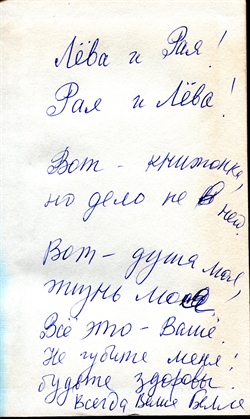 Лёва и Рая!
Рая и Лёва!
Вот - книжонка,
но дело не в ней.
Вот - душа моя,
жизнь моя.
Всё это - Ваше.
Не губите меня!
будьте здоровы.
Всегда Ваша Белла